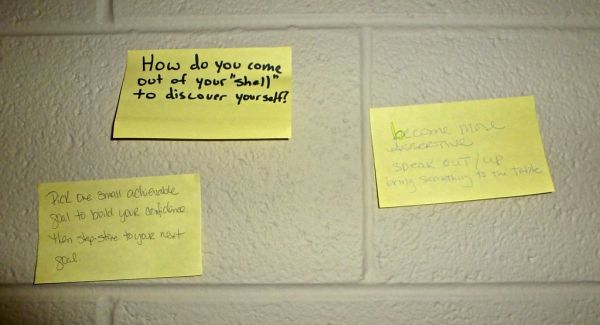 How do you come
out of your "shell"
to discover yourself?
become more
assertive
SPEAK OUT/UP
bring something to the table
Pick one small achievable
goal to build your confidence
then step-stone to your next
goal.